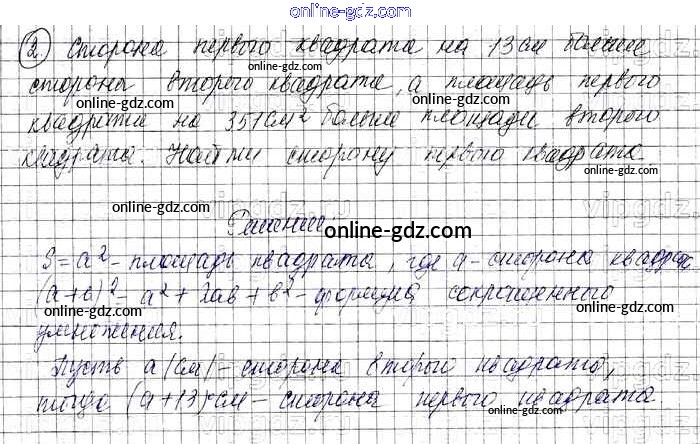 online-gdz.com
② Сторона первого квадрата на 13 см больше
online-gdz.com
стороны второго квадрата, а площадь первого
online-gdz.com online-gdz.com
квадрата на 351 см² больше площади второго
квадрата. Найти сторону первого квадрата.
online-gdz.com
vipgdz.ru
online-gdz.com
Решение:
online-gdz.com
S = a² - площадь квадрата, где a - сторона квадрата
(a+b)² = a² + 2ab + b² - формула сокращенного
умножения.
online-gdz.com
Пусть a (см) - сторона второго квадрата,
online-gdz.com
тогда (a+13) см - сторона первого квадрата.
online-gdz.com online-gdz.com